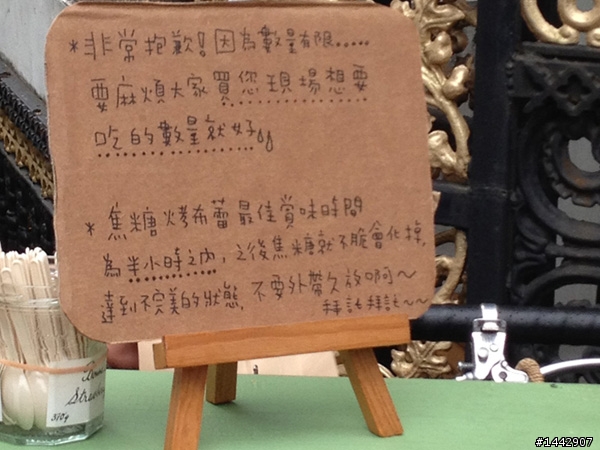 *非常抱歉!因為數量有限......
要麻煩大家買您現場想要
吃的數量就好
*焦糖烤布蕾最佳賞味時間
為半小時之內,之後焦糖就不脆會化掉,
達到不完美的狀態,不要外帶久放啊~
拜託拜託~~
370g
#1442907